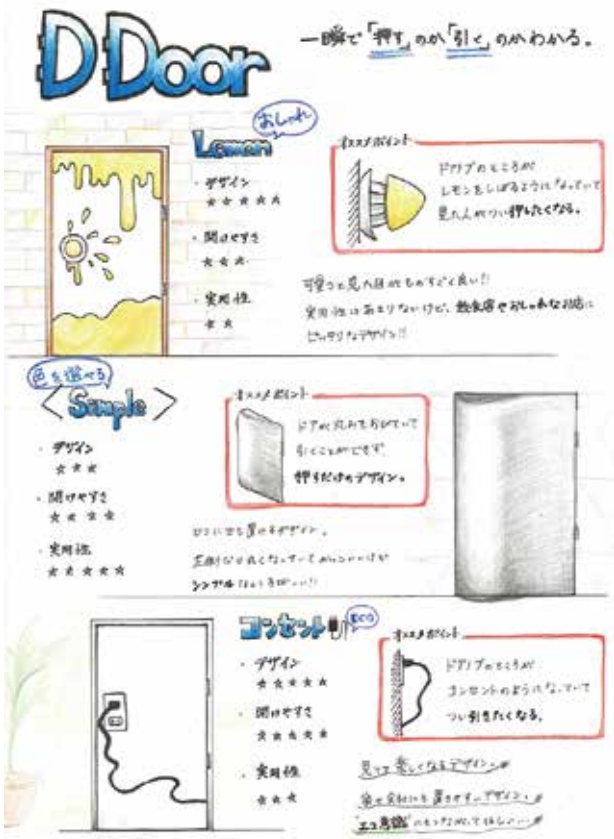 D Door
一瞬で「押す」のか「引く」のかわかる。
おしゃれ
Lemon
・デザイン
★★★★★
・開けやすさ
★★★
・実用性
★★
オススメポイント
ドアノブのところが
レモンをしぼるようになっていて
見た人がつい押したくなる。
可愛くて見た目がものすごく良い!!
実用性はあまりないけど、飲食店やおしゃれなお店に
ピッタリなデザイン!!
色を選べる
<Simple>
・デザイン
★★★
・開けやすさ
★★★★
・実用性
★★★★★
オススメポイント
ドアが丸みをおびていて
引くことができず
押すだけのデザイン。
どこにでも置けるデザイン。
シンプル
コンセント
ECO
・デザイン
★★★★★
・開けやすさ
★★★★★
・実用性
★★★
オススメポイント
ドアノブのところが
コンセントのようになっていて
つい引きたくなる。
見てて楽しくなるデザイン。
置きやすいデザイン。
"エコ意識"にもつながってほしい…